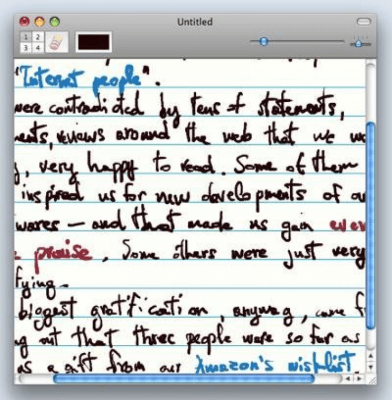 Untitled
1 2
3 4
"Internet people".
were contradicted by tens of statements,
ents, reviews around the web that we we
, very happy to read. Some of them
inspired us for new developments of ou
wares – and that made us gain even
praise, Some others were just very
fying.
biggest gratification, anyway, came f
ng out that three people were so far as
as a gift from our Amazon's wishlist.